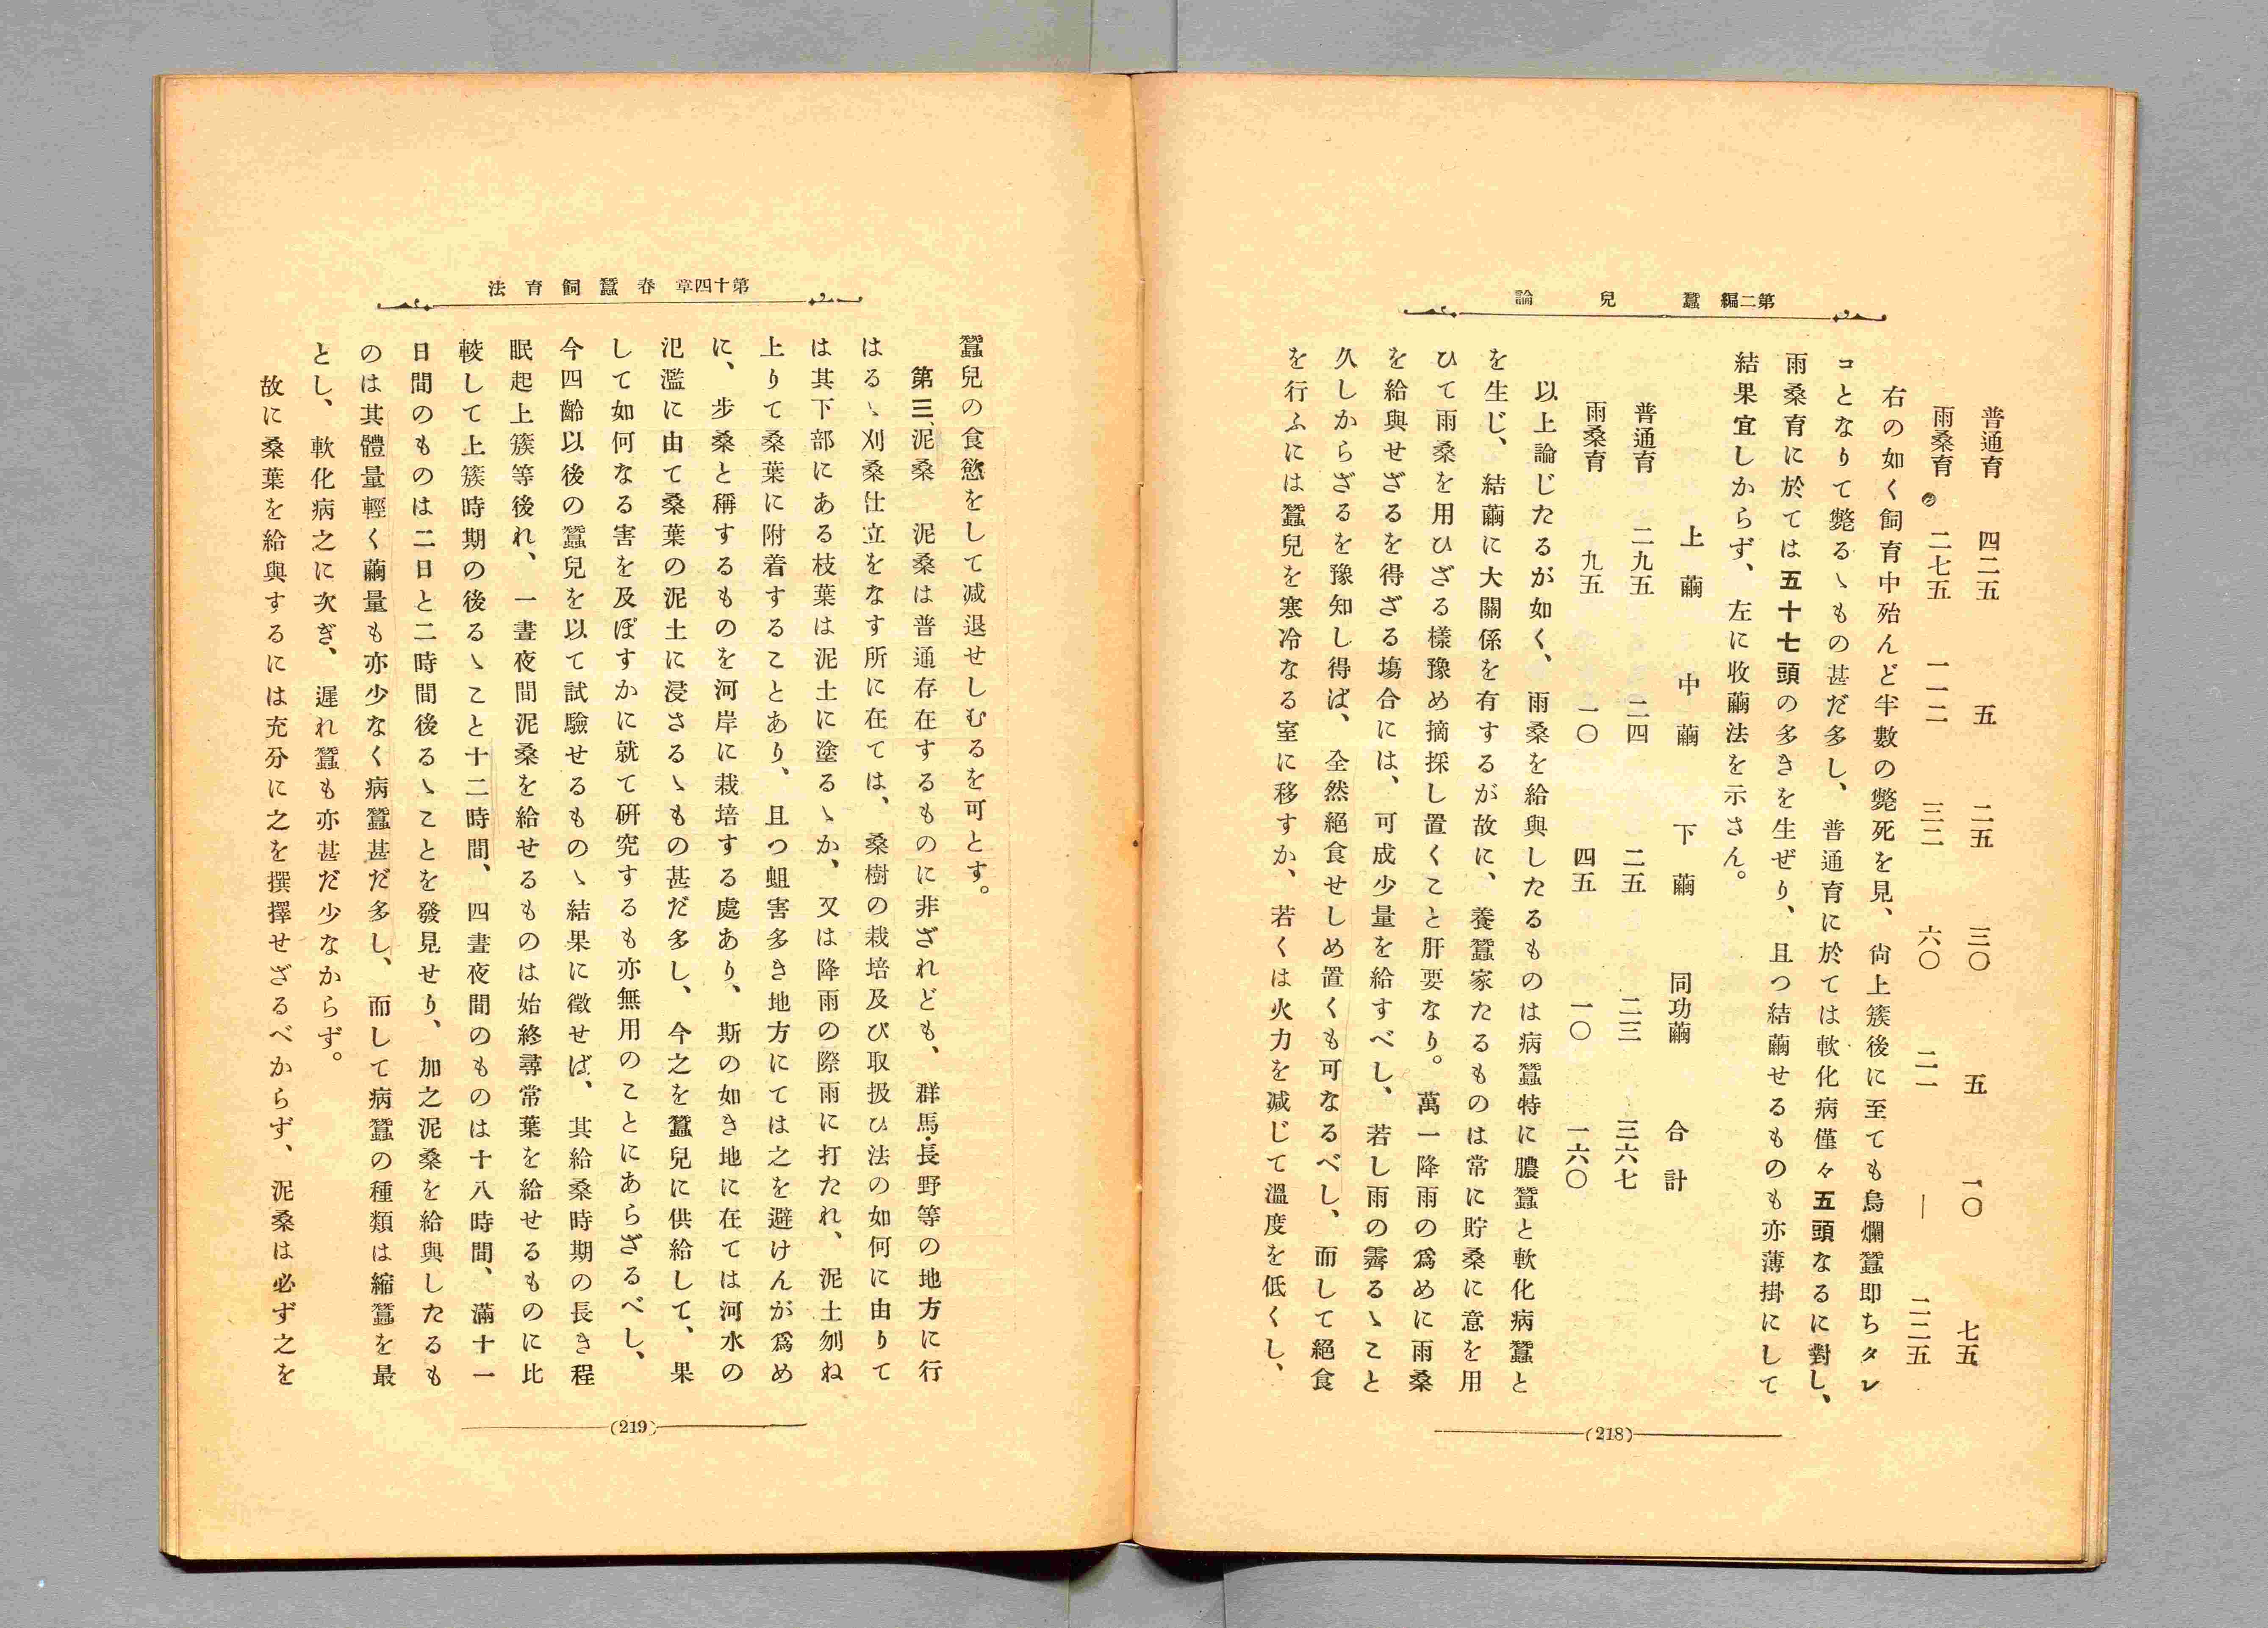 第二編　蠶　兒　論
普通育　四二五　五　二五　三〇　五　一〇　七五
雨桑育　二七五　一一二　三二　六〇　二一　―　二二五
右の如く飼育中殆んど半數の斃死を見、尙上簇後に至ても烏爛蠶即ちタレ
コとなりて斃るヽもの甚だ多し、普通育に於ては軟化病僅々五頭なるに對し、
雨桑育に於ては五十七頭の多きを生ぜり、且つ結繭せるものも亦薄掛にして
結果宜しからず、左に收繭法を示さん。
上繭　中繭　下繭　同功繭　合計
普通育　二九五　二四　二五　二三　三六七
雨桑育　九五　一〇　四五　一〇　一六〇
以上論じたるが如く、雨桑を給與したるものは病蠶特に膿蠶と軟化病蠶と
を生じ、結繭に大關係を有するが故に、養蠶家たるものは常に貯桑に意を用
ひて雨桑を用ひざる樣豫め摘採し置くこと肝要なり。萬一降雨の爲めに雨桑
を給與せざるを得ざる塲合には、可成少量を給すべし、若し雨の霽るヽこと
久しからざるを豫知し得ば、全然絕食せしめ置くも可なるべし、而して絕食
を行ふには蠶兒を寒冷なる室に移すか、若くは火力を減じて溫度を低くし、
(218)
第十四章　春蠶飼育法
蠶兒の食慾をして減退せしむるを可とす。
第三、泥桑　泥桑は普通存在するものに非ざれども、群馬・長野等の地方に行
はるヽ刈桑仕立をなす所に在ては、桑樹の栽培及び取扱ひ法の如何に由りて
は其下部にある枝葉は泥土に塗るヽか、又は降雨の際雨に打たれ、泥土刎ね
上りて桑葉に附着することあり、且つ蛆害多き地方にては之を避けんが爲め
に、步桑と稱するものを河岸に栽培する處あり、斯の如き地に在ては河水の
氾濫に由て桑葉の泥土に浸さるヽもの甚だ多し、今之を蠶兒に供給して、果
して如何なる害を及ぼすかに就て硏究するも亦無用のことにあらざるべし、
今四齡以後の蠶兒を以て試驗せるものヽ結果に徵せば、其給桑時期の長き程
眠起上簇等後れ、一晝夜間泥桑を給せるものは始終尋常葉を給せるものに比
較して上簇時期の後るヽこと十二時間、四晝夜間のものは十八時間、滿十一
日間のものは二日と二時間後るヽことを發見せり、加之泥桑を給與したるも
のは其體量輕く繭量も亦少なく病蠶甚だ多し、而して病蠶の種類は縮蠶を最
とし、軟化病之に次ぎ、遲れ蠶も亦甚だ少なからず。
故に桑葉を給與するには充分に之を撰擇せざるべからず、泥桑は必ず之を
(219)